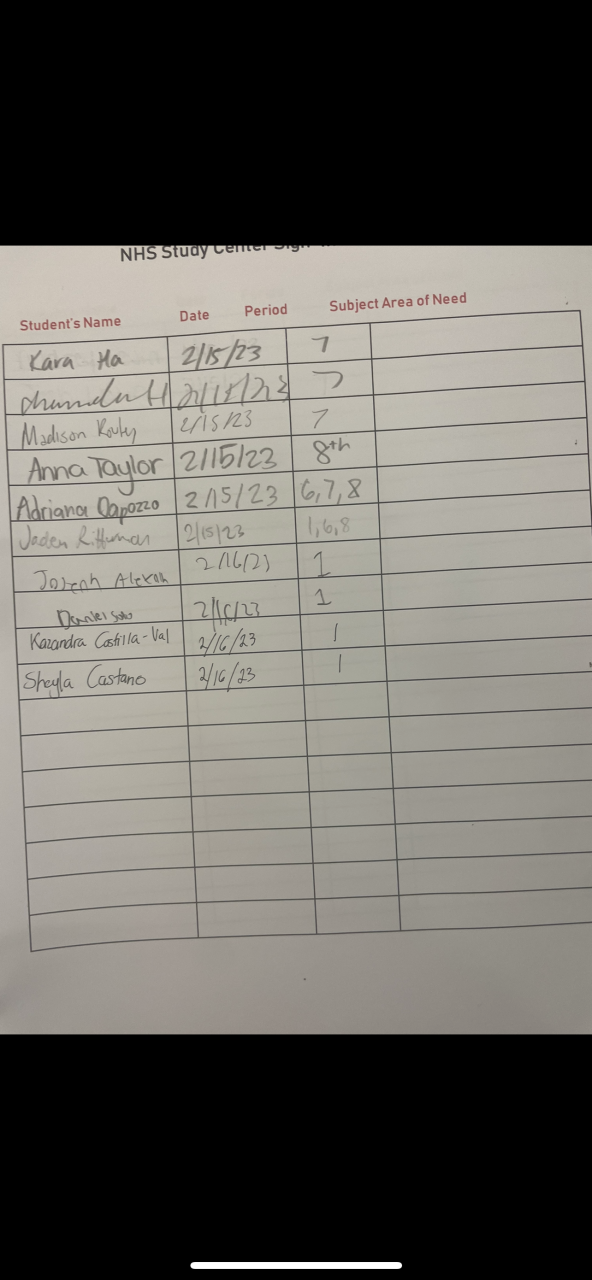 NHS Study Center Sign-
Student's Name Date Period Subject Area of Need
Kara Ha 2/15/23 7
2/15/23 7
Madison 2/15/23 7
Anna Taylor 2/15/23 8th
Adriana Capozzo 2/15/23 6,7,8
Jaden 2/15/23 1,6,8
Joseph 2/16/23 1
Daniel Soto 2/16/23 1
Kazandra Castilla-Val 2/16/23 1
Sheyla Castano 2/16/23 1